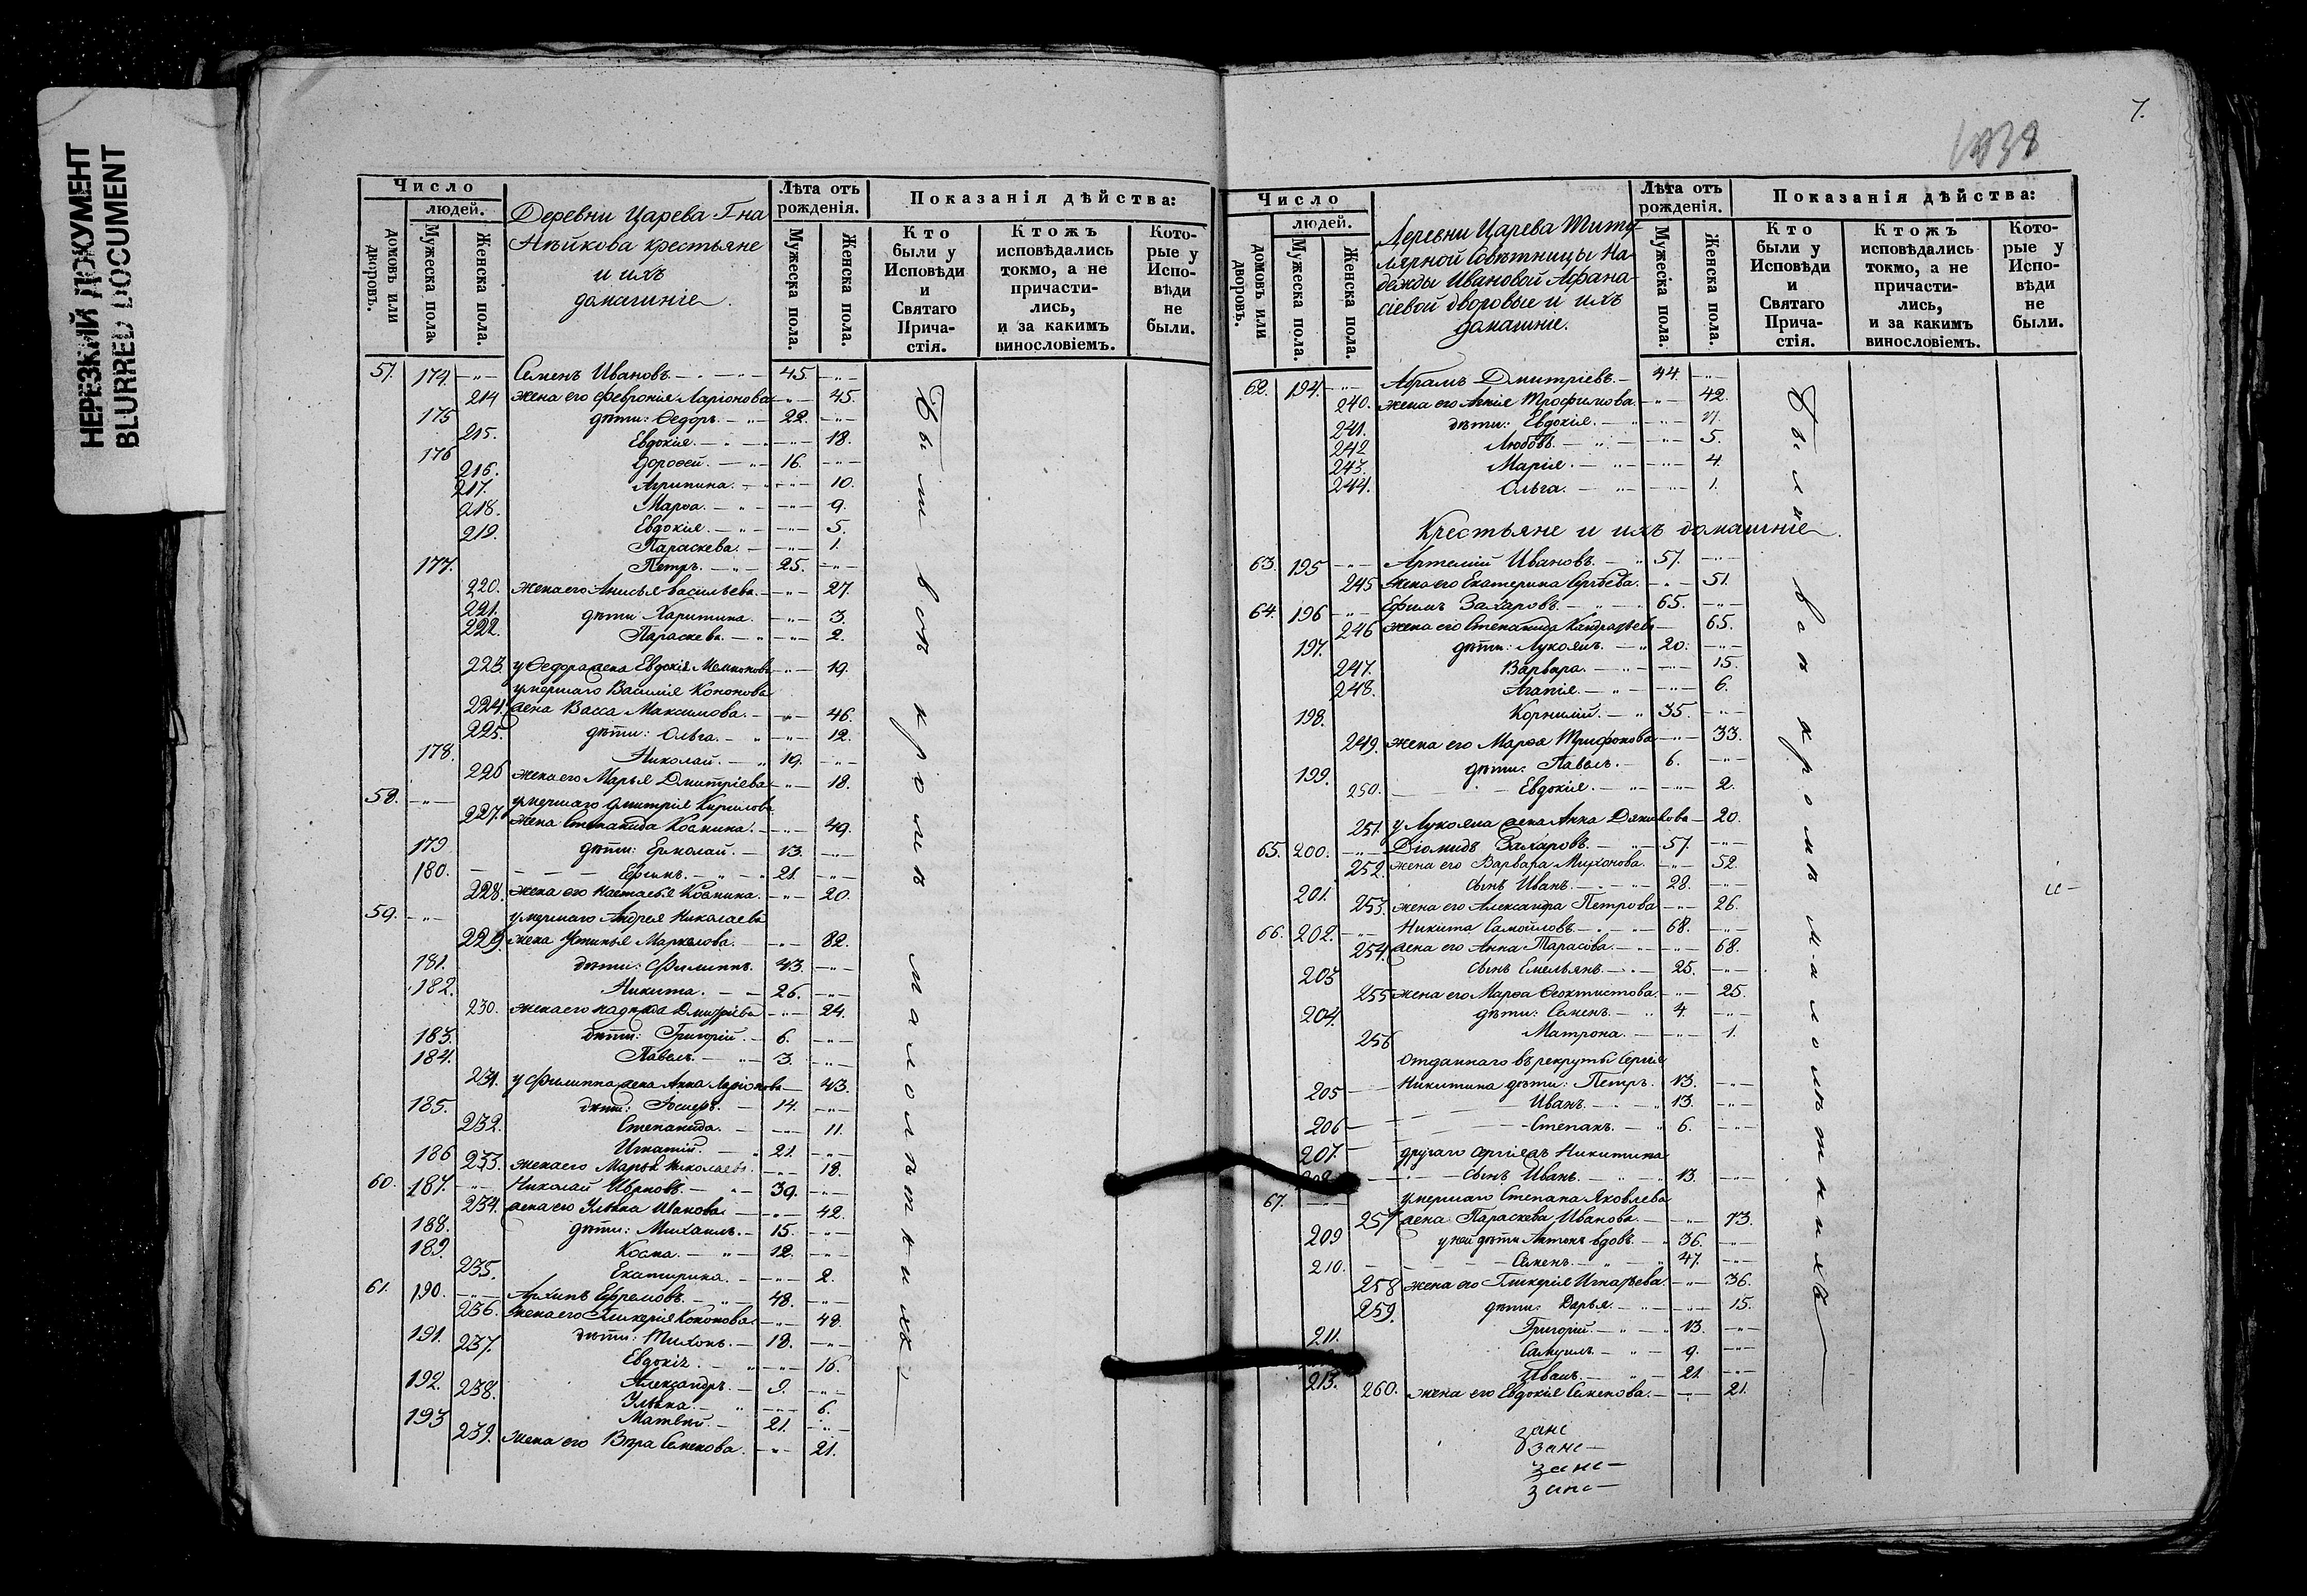 НЕРЕЗКИЙ ДОКУМЕНТ
BLURRED DOCUMENT
Число
людей.
домовъ или дворовъ.
Мужеска пола.
Женска пола.
Деревни Царева Гна
Анѣйкова крестьяне
и ихъ
домашніе.
Лѣта отъ рожденія.
Мужеска пола.
Женска пола.
Показанія дѣйства:
Кто были у Исповѣди и Святаго Прича-стія.
Ктожъ исповѣдались токмо, а не причасти-лись, и за какимъ винословіемъ.
Кото-рые у Испо-вѣди не были.
57. 174. Семенъ Ивановъ. 45.
214 жена его Февронія Ларіонова 45.
175 дѣти: Ѳедоръ. 22.
215. Евдокія. 18.
176 Дороѳей. 16.
216. Агрипина. 10.
217. Марѳа. 9.
218. Евдокія. 5.
219. Параскева. 1.
177. Петръ. 25.
220. жена его Анисья Васильева. 27.
221. дѣти: Харитина. 3.
222. Параскева. 2.
223. у Ѳедора жена Евдокія 19.
умершаго Василія Кононова
224. жена Васса Максимова. 46.
225. дѣти: Ольга. 12.
178. Николай. 19.
226 жена его Марья Дмитріева 18.
58. умершаго Дмитрія Кирилова
227. жена Степанида Козмина. 49.
179 дѣти: Ермолай. 13.
180. 21.
228. жена его Настасья Козмина. 20.
59. умершаго Андрея Николаева
229. жена Устинья Маркелова. 82.
181. дѣти: Филиппъ. 43.
182. Никита. 26.
230. жена его Надежда Дмитріева 24.
183. дѣти: Григорій. 6.
184. Павелъ. 3.
231. у Филиппа жена Анна Ларіонова 43.
185. дѣти: Іосифъ. 14.
232. Степанида. 11.
186 Игнатій. 21.
233. жена его Марья Николаева. 18.
60. 187. Николай Ивановъ. 39.
234. жена его Ульяна Иванова 42.
188. дѣти: Михаилъ. 15.
189. Козма. 12.
235. Екатирина. 2.
61. 190. Архипъ Ефремовъ. 48.
236. жена его Гликерія Кононова. 48.
191. дѣти: Тихонъ. 18.
237. Евдокія. 16.
192. Александръ. 9.
238. Ульяна. 6.
193 Матвѣй. 21.
239. жена его Вѣра Семенова. 21.
Бытвои кромѣ малолѣтнихъ
7.
Число
людей.
домовъ или дворовъ.
Мужеска пола.
Женска пола.
Деревни Царева Титу-
лярной Совѣтницы На-
дежды Ивановой Афана-
сіевой дворовые и ихъ
домашніе.
Лѣта отъ рожденія.
Мужеска пола.
Женска пола.
Показанія дѣйства:
Кто были у Исповѣди и Святаго Прича-стія.
Ктожъ исповѣдались токмо, а не причасти-лись, и за какимъ винословіемъ.
Кото-рые у Испо-вѣди не были.
62. 194. Абрамъ Дмитріевъ. 44.
240. жена его Трофимова. 42.
241. дѣти: Евдокія.
242 Любовь. 5.
243. Марія. 4.
244. Ольга. 1.
Крестьяне и ихъ домашніе.
63. 195 Артемій Ивановъ. 57.
245 жена его Екатерина 51.
64. 196 Ефимъ Захаровъ. 65.
246 жена его Степанида Кандратьева 65.
197. дѣти: Лукоянъ. 20.
247. Варвара. 15.
248. Агапія. 6.
198. Корнилій. 35.
249. жена его Марѳа Трифонова 33.
199. дѣти: Павелъ. 6.
250. Евдокія. 2.
251. у Лукояна жена Анна 20.
65. 200. Діомидъ Захаровъ. 57.
252. жена его Варвара 52.
201. сынъ Иванъ. 28.
253. жена его Александра Петрова 26.
66. 202. Никита Самойловъ. 68.
254. жена его Анна Тарасова. 68.
203 сынъ Емельянъ. 25.
255 жена его Марѳа Ѳеоктистова. 25.
204. дѣти: Семенъ. 4.
256 Матрона. 1.
отданнаго въ рекруты Сергія
205 Никитина дѣти: Петръ. 13.
Иванъ. 13.
206 Степанъ. 6.
207. другаго Сергія Никитина
сынъ Иванъ. 13.
67. умершаго Степана Яковлева
257 жена Параскева Иванова. 73.
209 у ней дѣти Антонъ вдовъ. 36.
210. Семенъ. 47.
258 жена его Гликерія Игнатьева. 36.
259. дѣти: Дарья. 15.
211. Григорій. 13.
Самуилъ. 9.
213. Иванъ. 21.
260. жена его Евдокія Семенова. 21.
кромѣ малолѣтнихъ